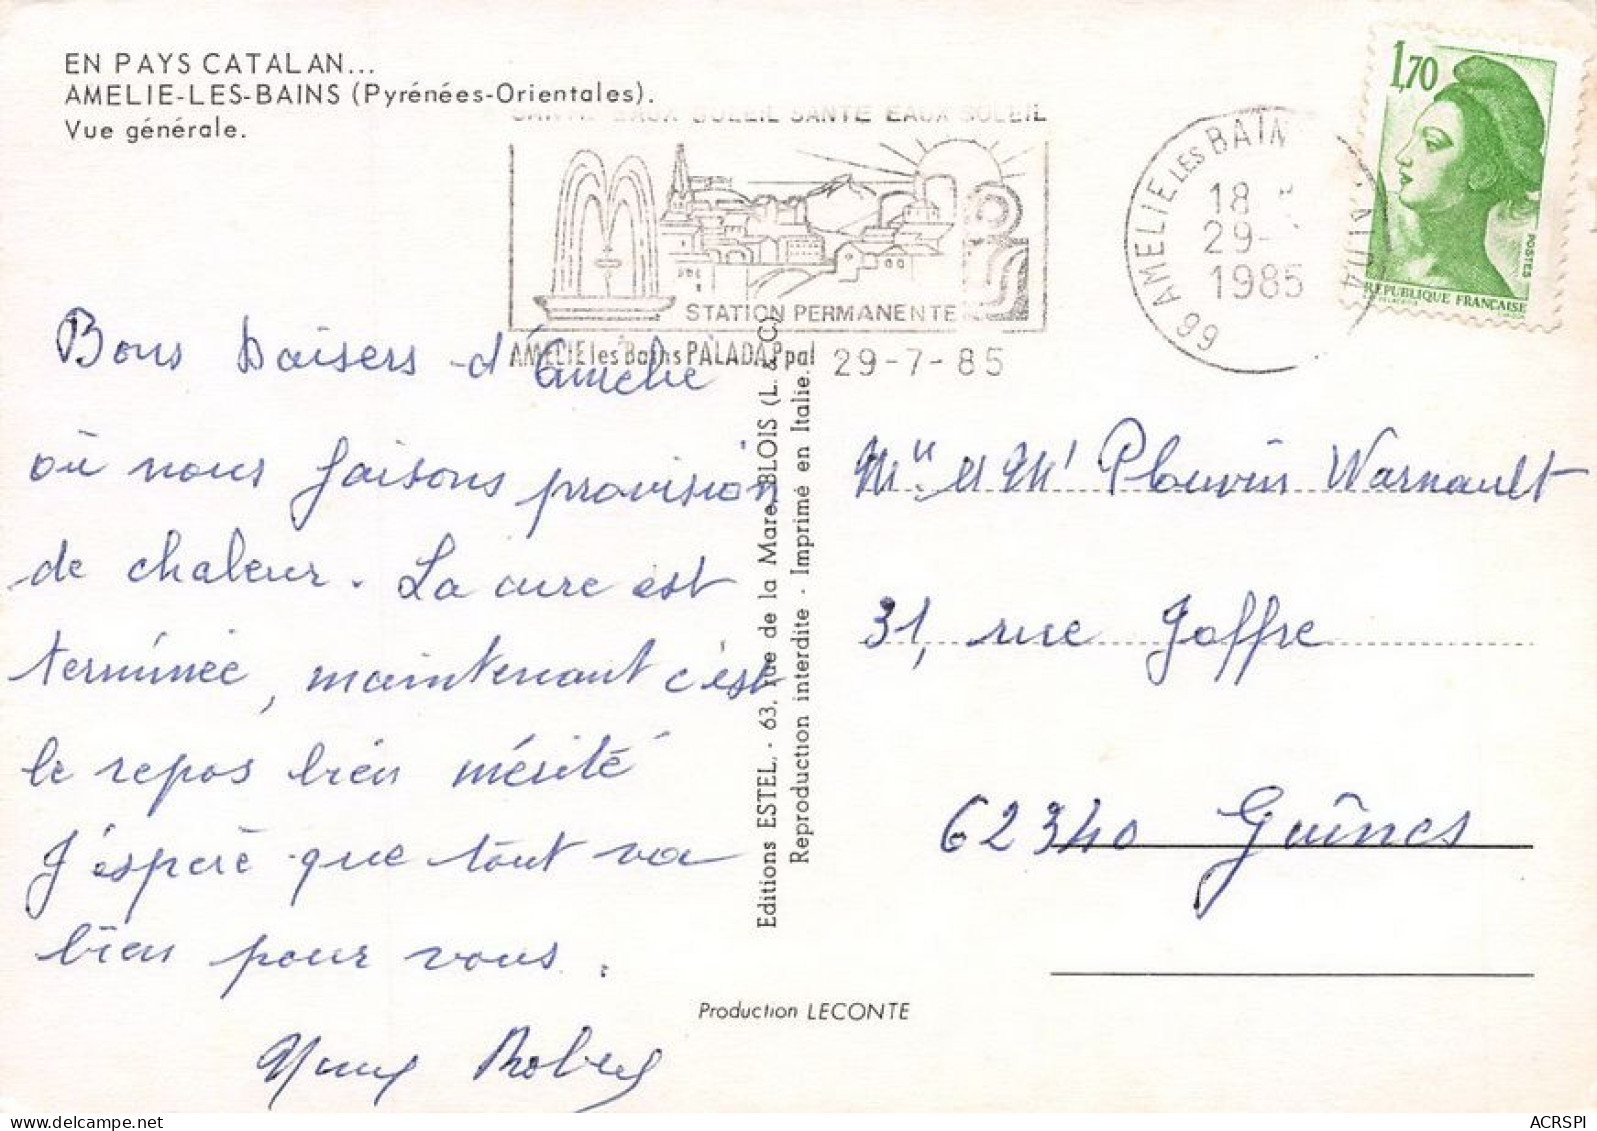 EN PAYS CATALAN...
AMELIE-LES-BAINS (Pyrénées-Orientales).
Vue générale.
SANTE EAUX SOLEIL SANTE EAUX SOLEIL
STATION PERMANENTE
AMELIE les Bains PALALDA Ppal 29-7-85
66 AMELIE LES BAIN
18
29-
1985
1,70
POSTES
REPUBLIQUE FRANÇAISE
Bons baisers d'Amélie
où nous faisons provision
de chaleur. La cure est
terminée, maintenant c'est
le repos bien mérité
J'espère que tout va
bien pour vous.
Editions ESTEL, - 63, rue de la Mare, BLOIS (L. & C.)
Reproduction interdite - Imprimé en Italie.
Plouvin Warnault
31, rue Joffre
62340 Guînes
Production LECONTE
ACRSPI